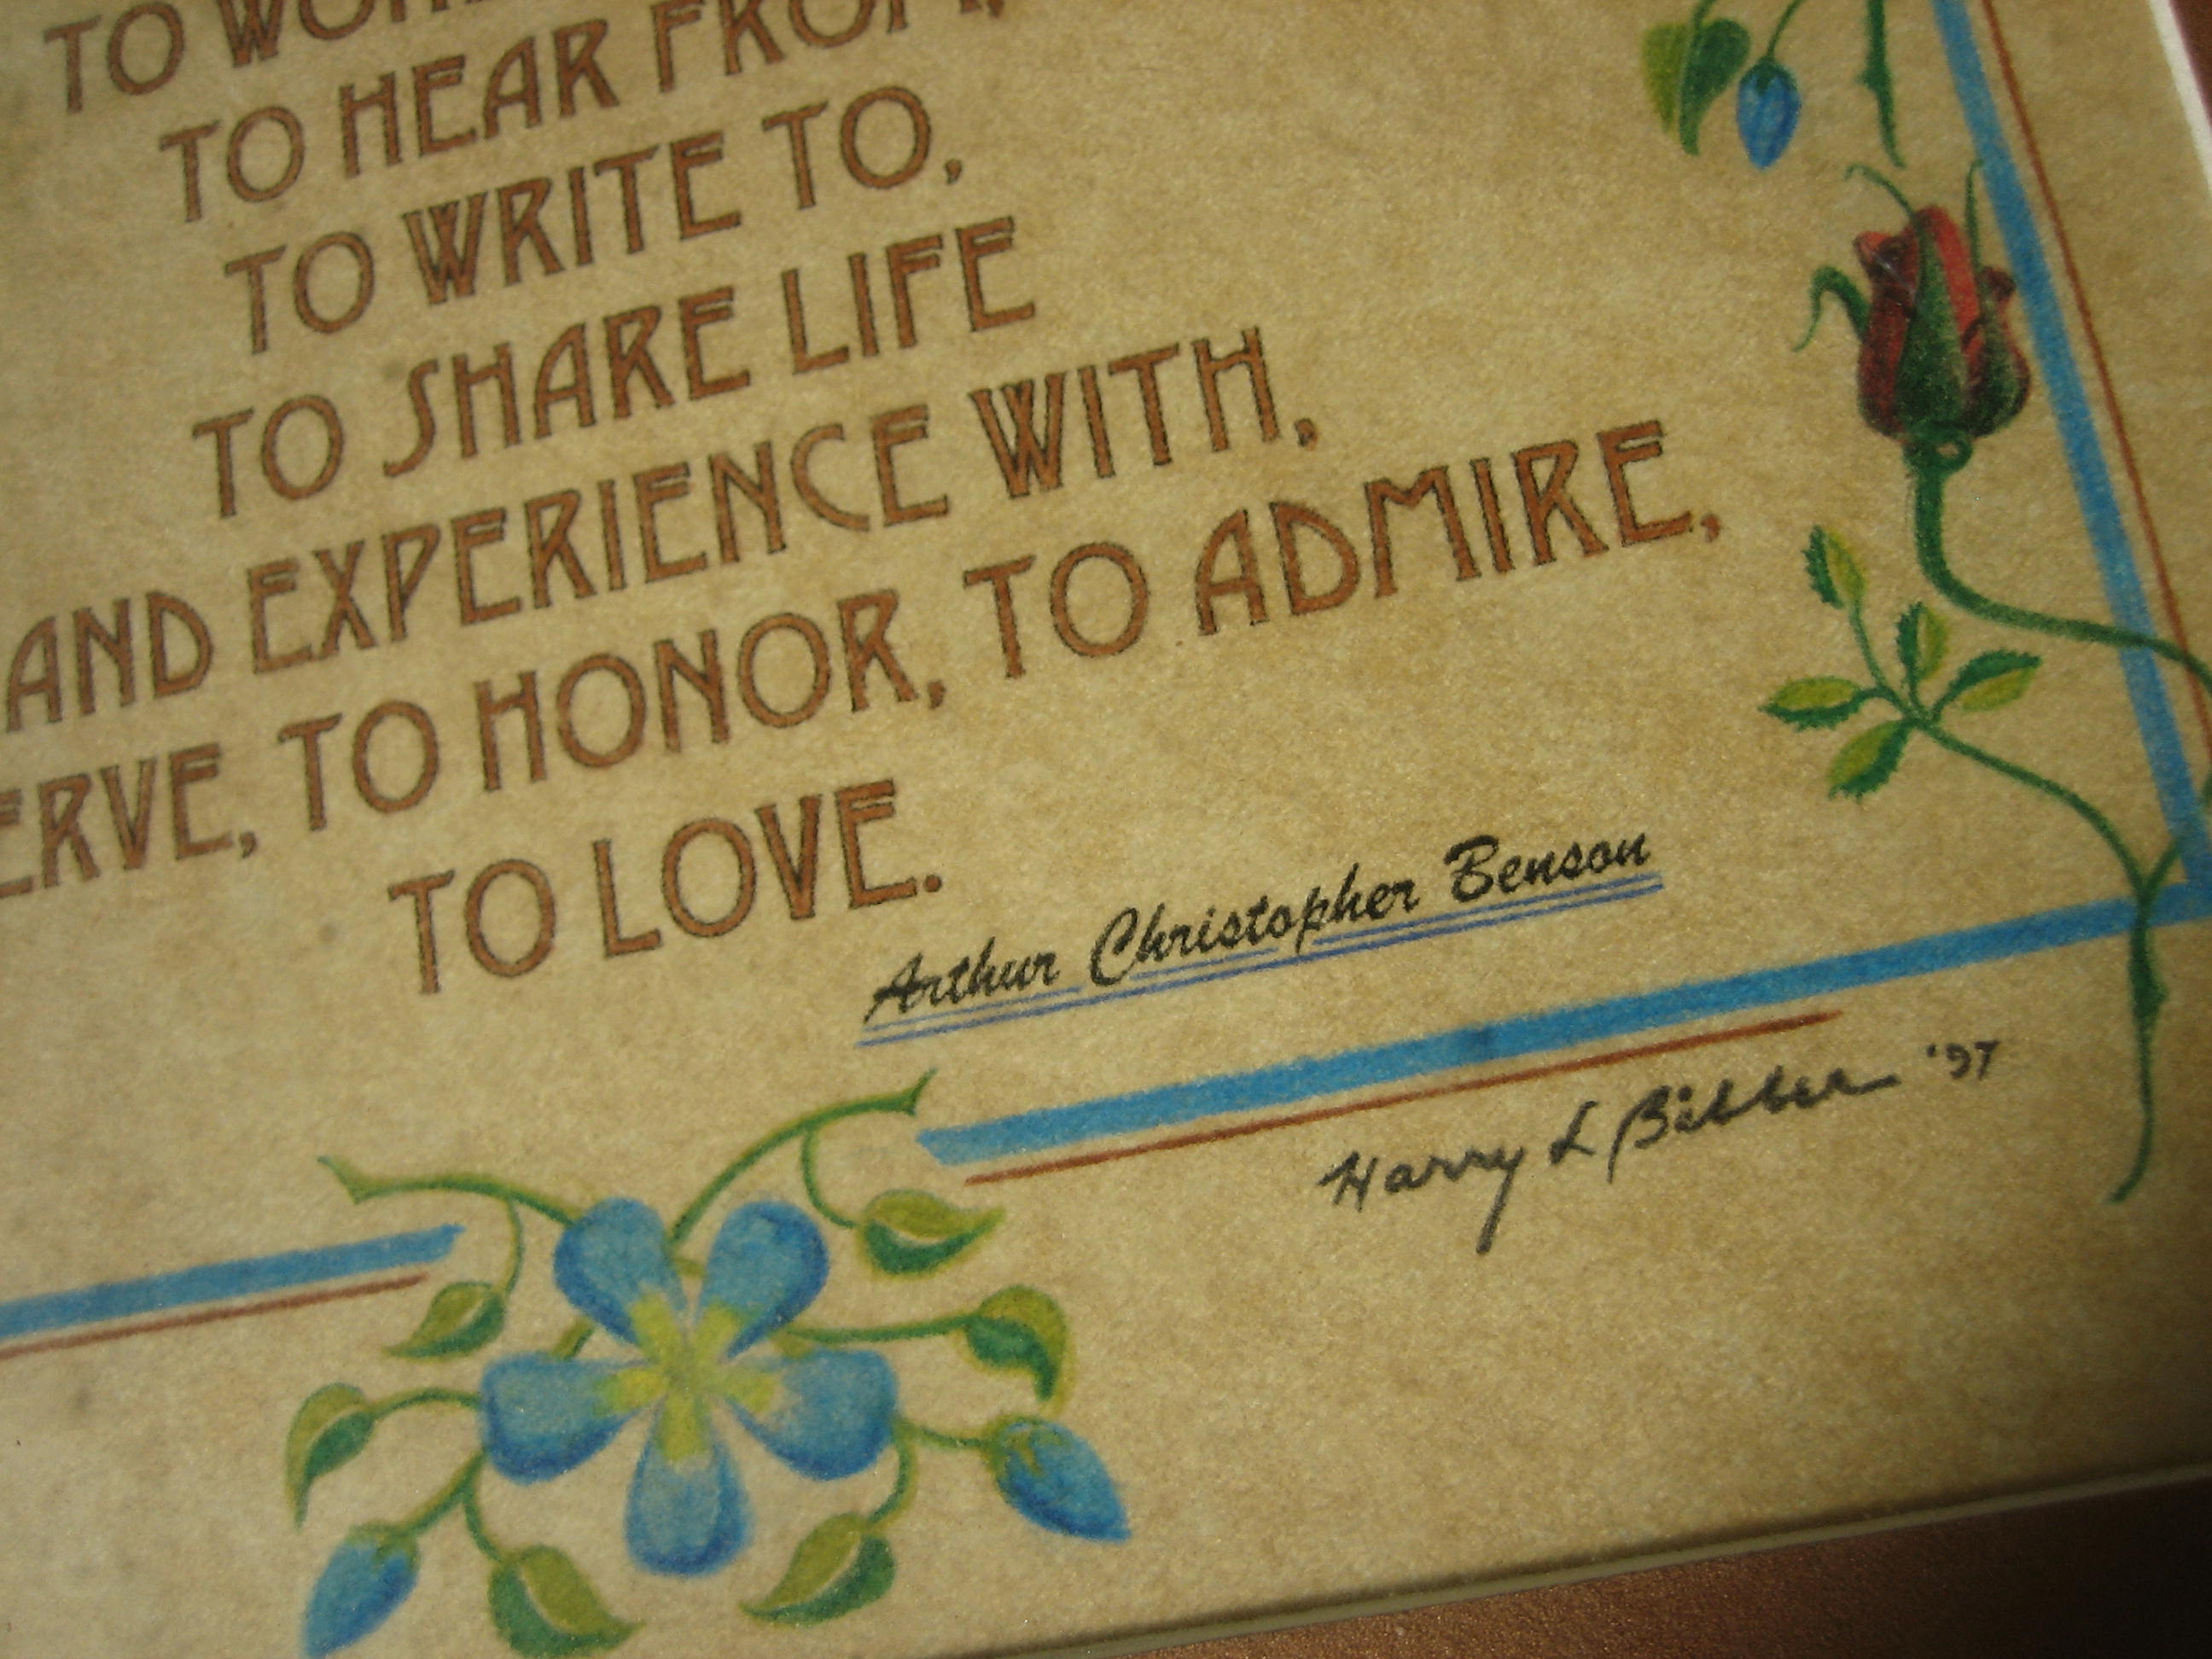 TO
TO HEAR FROM,
TO WRITE TO,
TO SHARE LIFE
AND EXPERIENCE WITH,
ERVE, TO HONOR, TO ADMIRE,
TO LOVE.
Arthur Christopher Benson
Harry L Bibber '97